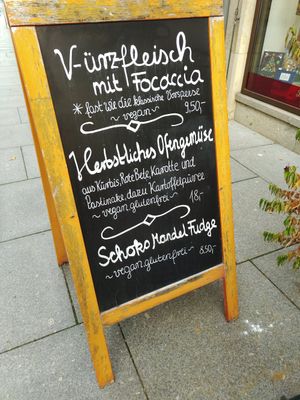 V-ürzfleisch
mit Focaccia
* fast wie die klassische Vorspeise
~ vegan ~ 9,50,-
Herbstliches Ofengemüse
aus Kürbis, Rote Bete, Karotte und
Pastinake, dazu Kartoffelpüree
~ vegan, glutenfrei ~ 18,-
Schoko Mandel Fudge
~ vegan, glutenfrei ~ 8,50,-